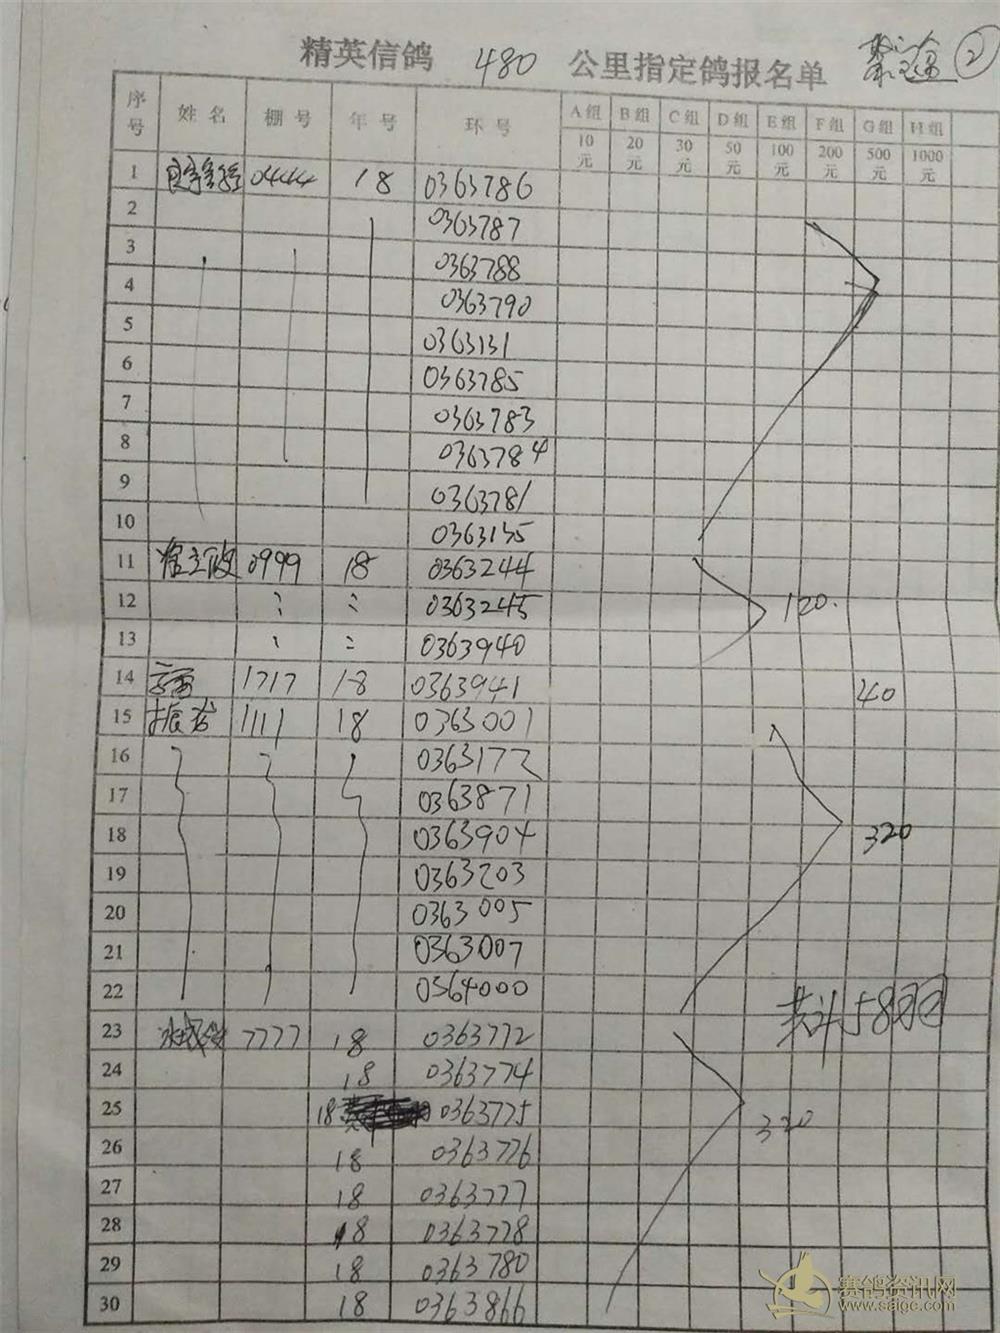 精英信鸽 480 公里指定鸽报名单 ②
序号 姓名 棚号 年号 环号 A组 B组 C组 D组 E组 F组 G组 H组
10元 20元 30元 50元 100元 200元 500元 1000元
1 0444 18 0363786
2 0363787
3 0363788
4 0363790
5 0363131
6 0363785
7 0363783
8 0363784
9 0363781
10 0363135
11 0999 18 0363244
12 0363245 120.
13 0363940
14 1717 18 0363941 40
15 振龙 1111 18 0363001
16 0363172
17 0363871
18 0363904 320
19 0363203
20 0363005
21 0363007
22 0364000
共计58羽
23 7777 18 0363772
24 18 0363774
25 18 0363775
320
26 18 0363776
27 18 0363777
28 18 0363778
29 18 0363780
30 18 0363866
赛鸽资讯网
www.saigc.com